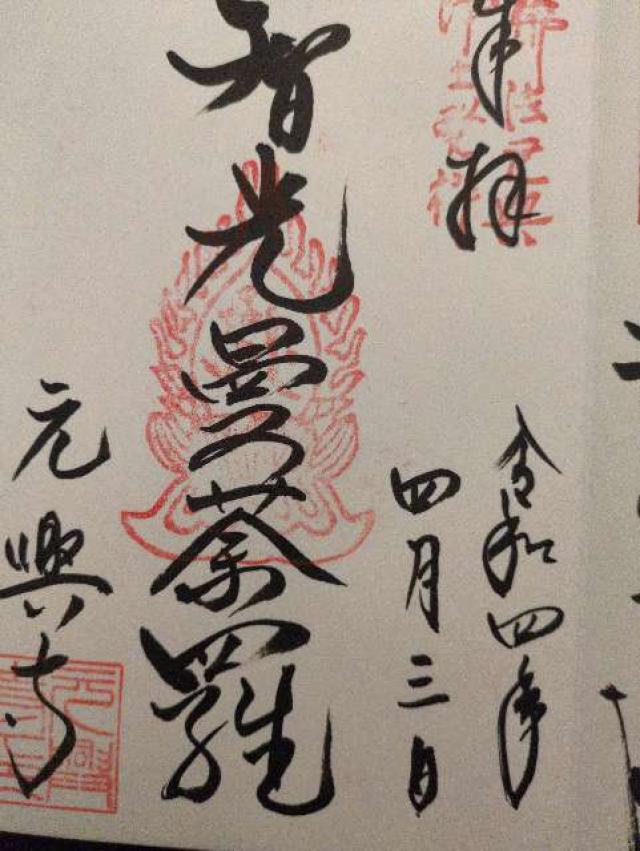 奉拝
令和四年
四月三日
智光曼荼羅
元興寺